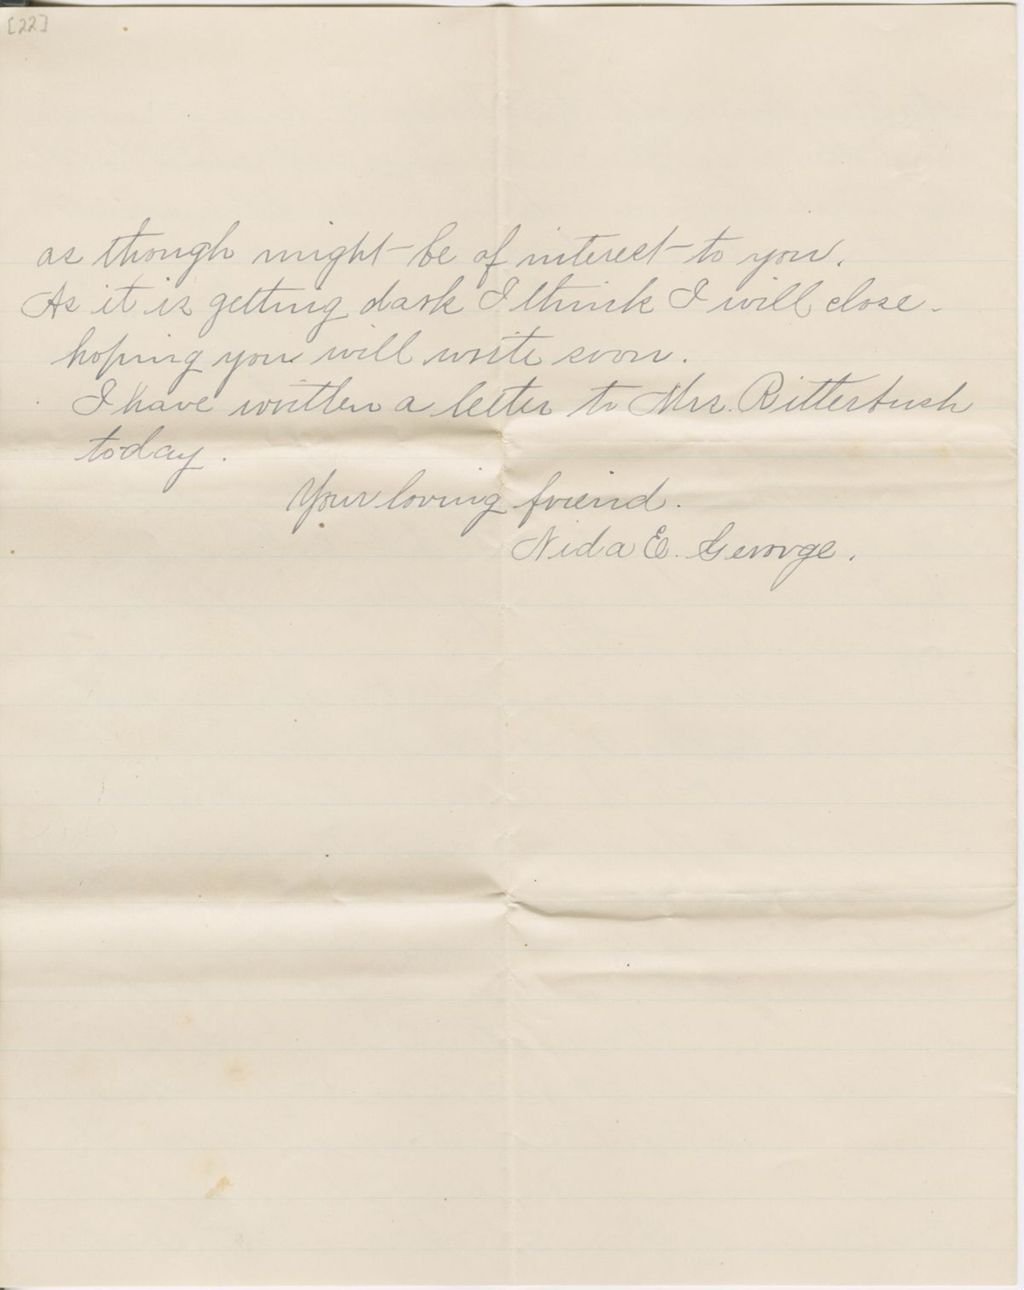 [22]
as though might be of interest to you.
As it is getting dark I think I will close.
hoping you will write soon.
I have written a letter to Mrs. Ritterbush
today.
Your loving friend.
Nida E. George.